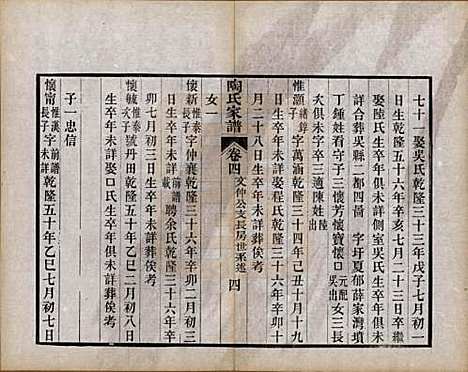 七十一娶吳氏乾隆三十三年戊子七月初一
日生乾隆五十六年辛亥七月二十三日卒繼
娶陸氏生卒年俱未詳側室吳氏生卒年俱未
詳合葬吳縣二都四啚 字圩夏郁薛家灣墳
丁鍾姓看守子三懷芳懷寶懷口元配吳出女三長
次俱未字三適陳姓陸出
惟灝緒錞子字萬涵乾隆三十四年己丑十月十九
日生卒年未詳娶程氏乾隆三十六年辛卯十
月二十八日生卒年未詳葬俟考
女一
陶氏家譜 卷四 文仲公支長房世系述 四
懷新惟泰長子字仲襄乾隆三十六年辛卯三月初三
日生卒年未詳前譜載聘余氏乾隆三十六年辛
卯七月初三日生卒年未詳葬俟考
懷毓惟泰次子號丹田乾隆三十三年 二月初八日
生卒年未詳娶口氏生卒年俱未詳葬俟考
子一忠信
懷甯惟漢長子字未詳前譜乾隆五十年乙巳七月初七日